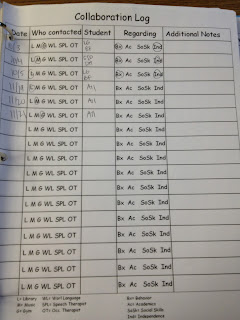 Collaboration Log
Date Who contacted Student Regarding Additional Notes
L M G WL SPL OT Bx Ac SoSk Ind
L M G WL SPL OT Bx Ac SoSk Ind
10/5 L M G WL SPL OT Bx Ac SoSk Ind
L M G WL SPL OT All Bx Ac SoSk Ind
11/20 L M G WL SPL OT All Bx Ac SoSk Ind
11/21 L M G WL SPL OT All Bx Ac SoSk Ind
L M G WL SPL OT Bx Ac SoSk Ind
L M G WL SPL OT Bx Ac SoSk Ind
L M G WL SPL OT Bx Ac SoSk Ind
L M G WL SPL OT Bx Ac SoSk Ind
L M G WL SPL OT Bx Ac SoSk Ind
L M G WL SPL OT Bx Ac SoSk Ind
L M G WL SPL OT Bx Ac SoSk Ind
L M G WL SPL OT Bx Ac SoSk Ind
L M G WL SPL OT Bx Ac SoSk Ind
L M G WL SPL OT Bx Ac SoSk Ind
L= Library WL= Worl Language Bx= Behavior
M= Music SPL= Speech Therapist Ac= Academics
G= Gym OT= Occ. Therapist SoSk= Social Skills
Ind= Independence